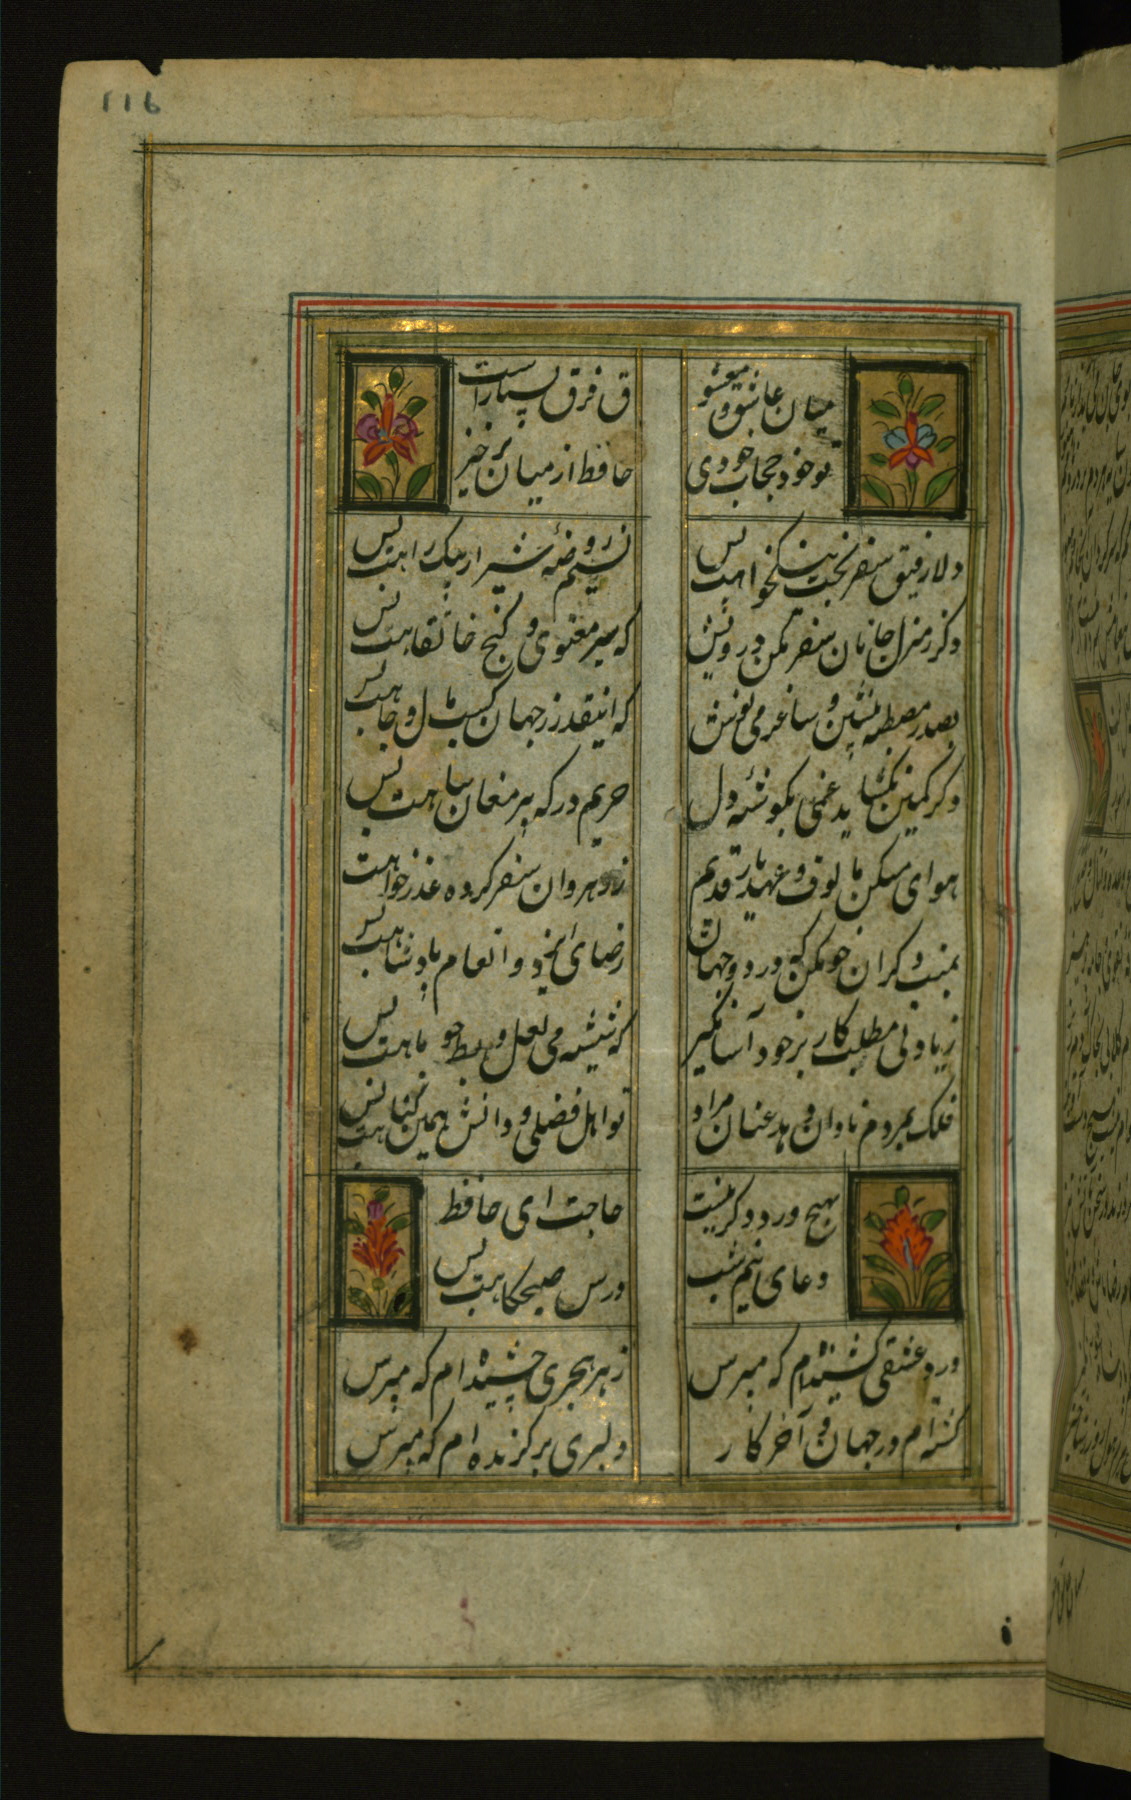 116
میان عاشق و معشو ق فرق بسیار است
تو خود حجاب خودی حافظ از میان برخیز
دلا رفیق سفر بخت نیکخواهت بس نسیم روضهٔ شیراز پیک راهت بس
دگر ز منزل جانان سفر مکن درویش که سیر معنوی و کنج خانقاهت بس
بصدر مصطبه بنشین و ساغر می نوش که اینقدر ز جهان کسب مال و جاهت بس
وگر کمین بگشاید غمی بگوشهٔ دل حریم درگه پیر مغان پناهت بس
هوای مسکن مألوف و عهد یار قدیم ز رهروان سفر کرده عذر خواهت بس
بمنت دگران خو مکن که در دو جهان رضای ایزد و انعام پادشاهت بس
زیادتی مطلب کار بر خود آسان گیر که شیشه می لعل و بط چو ماهت بس
فلک بمردم نادان دهد عنان مراد تو اهل فضلی و دانش همین گناهت بس
بهیچ ورد دگر نیست حاجت ای حافظ
دعای نیم شب و درس صبحگاهت بس
درد عشقی کشیده‌ام که مپرس زهر هجری چشیده‌ام که مپرس
گشته‌ام در جهان و آخر کار دلبری برگزیده‌ام که مپرس